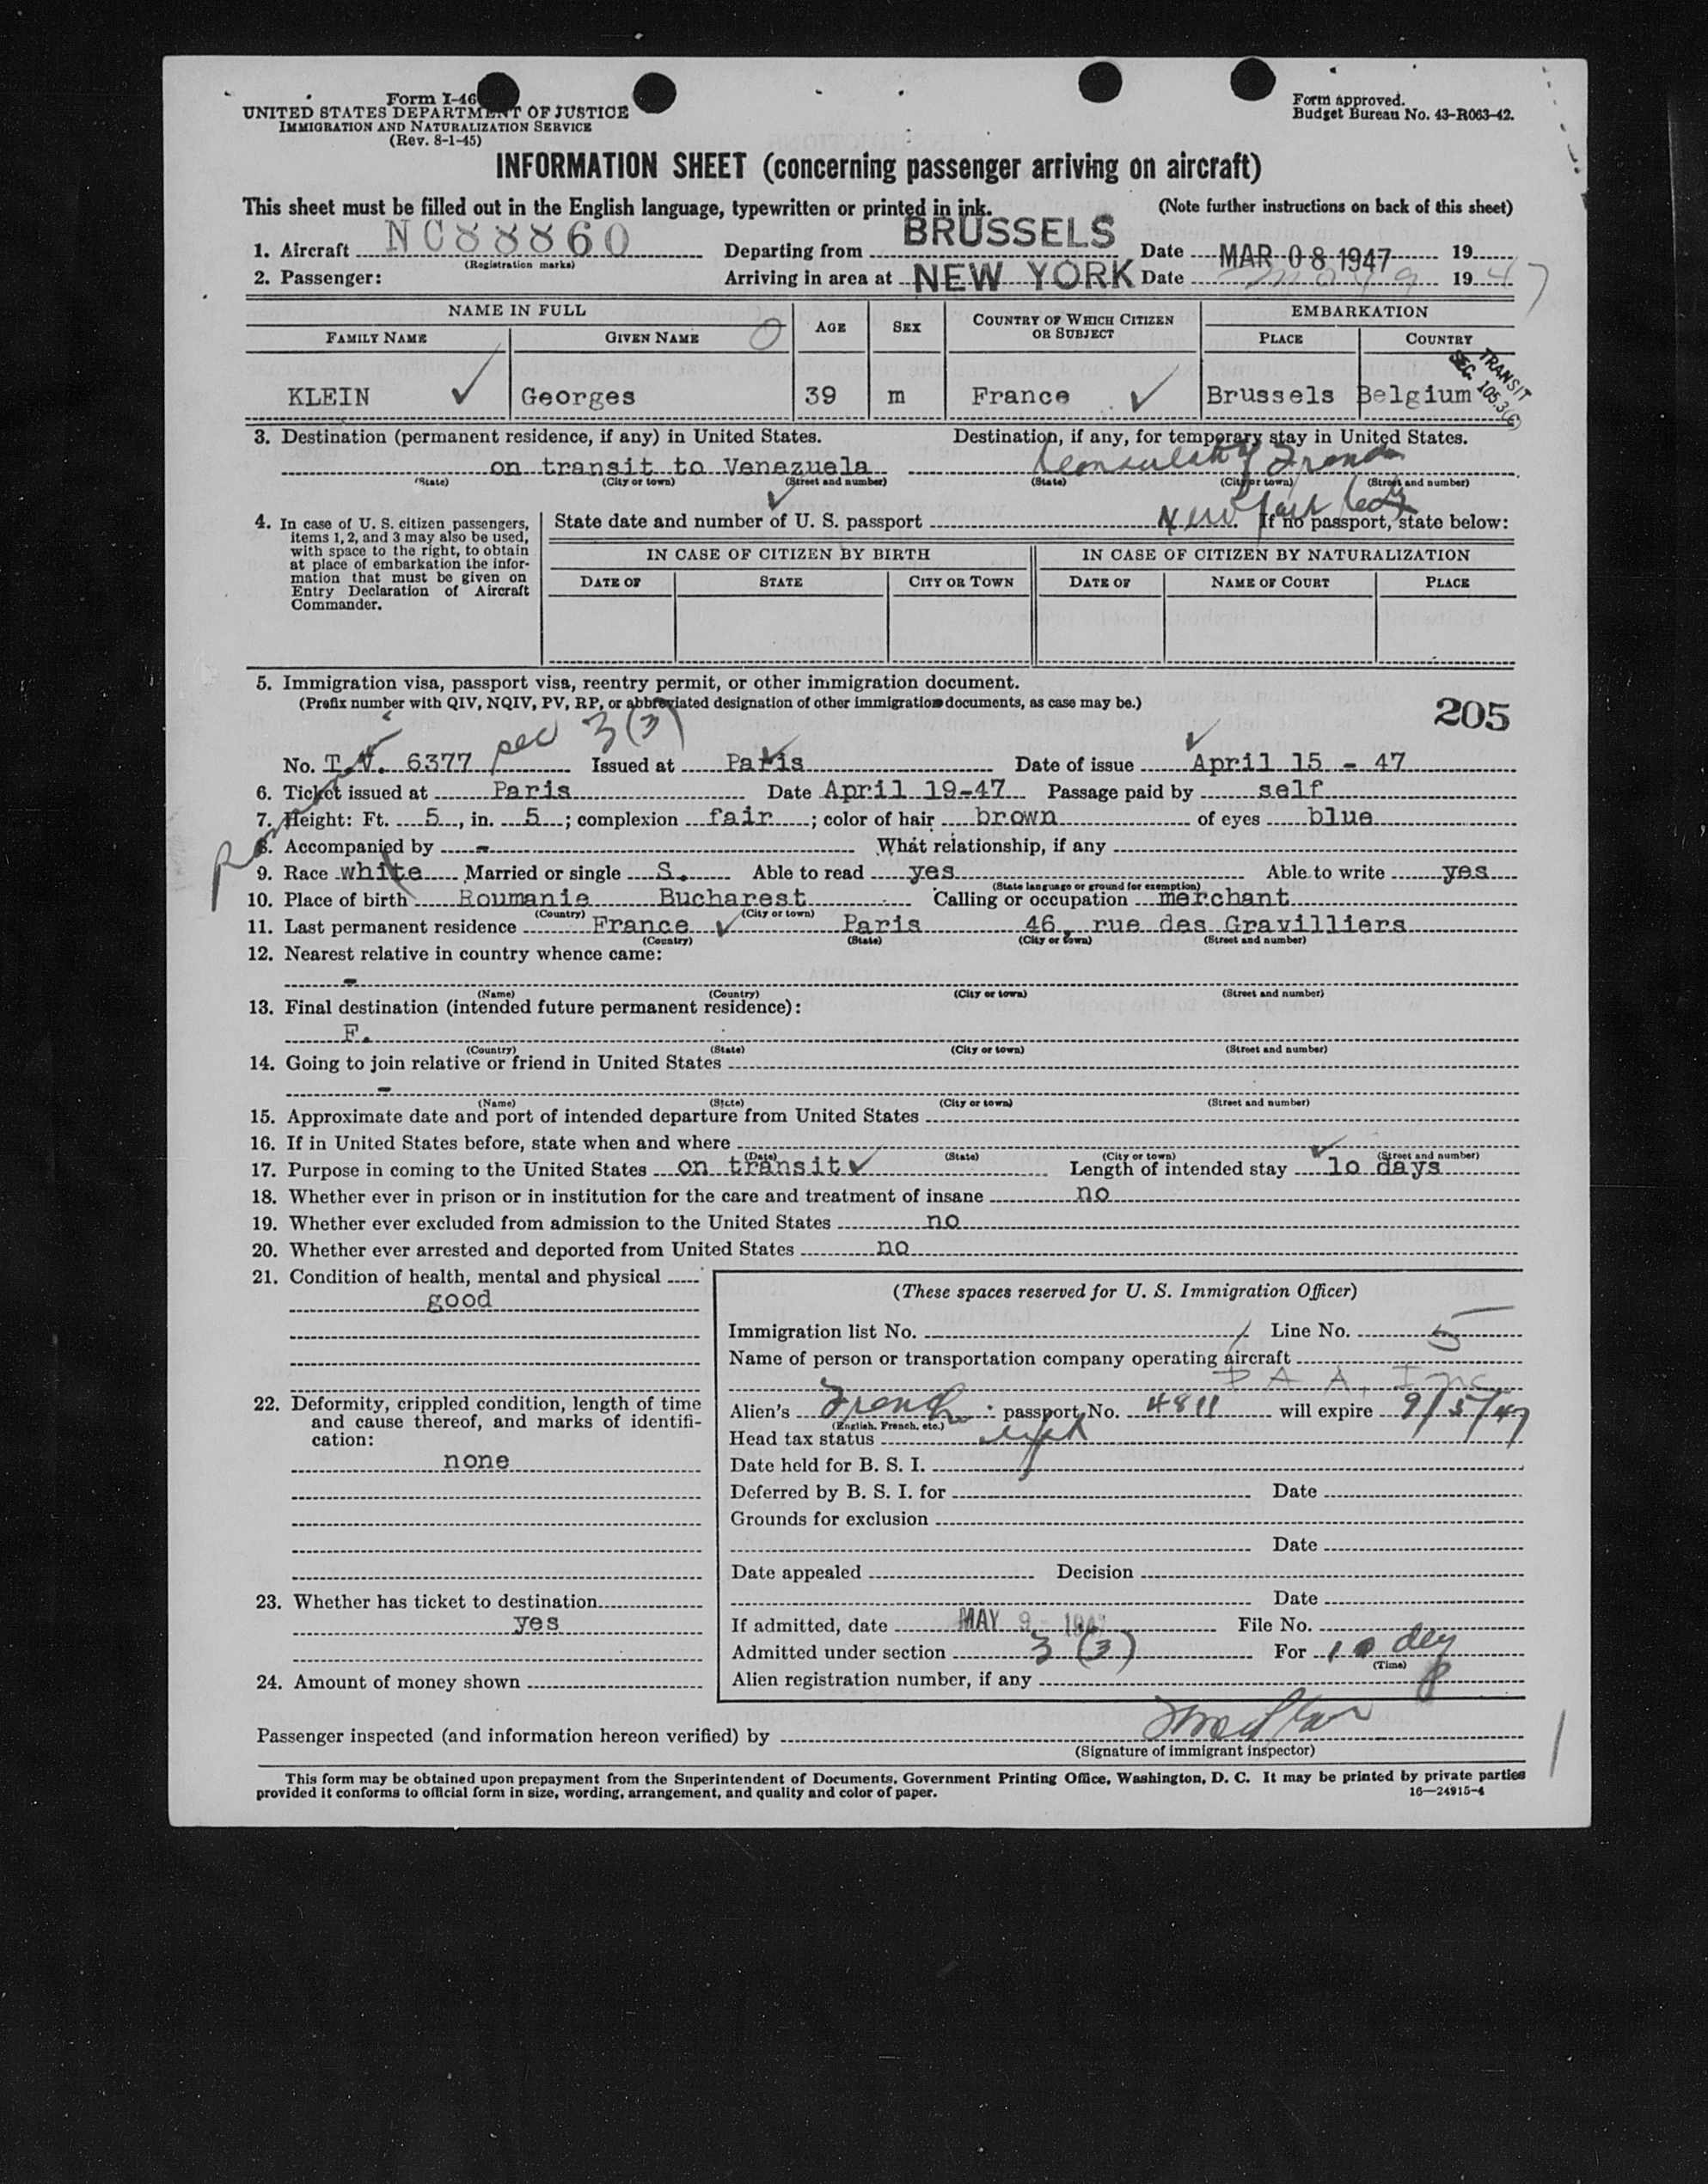 Form I-46
UNITED STATES DEPARTMENT OF JUSTICE
IMMIGRATION AND NATURALIZATION SERVICE
(Rev. 8-1-45)
Form approved.
Budget Bureau No. 43-R063-42.
INFORMATION SHEET (concerning passenger arriving on aircraft)
This sheet must be filled out in the English language, typewritten or printed in ink. (Note further instructions on back of this sheet)
1. Aircraft NC88860 Departing from BRUSSELS Date MAR 08 1947 19
(Registration marks)
2. Passenger: Arriving in area at NEW YORK Date May 9 1947
NAME IN FULL AGE SEX COUNTRY OF WHICH CITIZEN OR SUBJECT EMBARKATION
FAMILY NAME GIVEN NAME PLACE COUNTRY
TRANSIT
SEC. 105.3
KLEIN Georges 39 m France Brussels Belgium
3. Destination (permanent residence, if any) in United States. Destination, if any, for temporary stay in United States.
on transit to Venezuela
(State) (City or town) (Street and number) (State) (City or town) (Street and number)
New York City
4. In case of U. S. citizen passengers, items 1, 2, and 3 may also be used, with space to the right, to obtain at place of embarkation the information that must be given on Entry Declaration of Aircraft Commander.
State date and number of U. S. passport If no passport, state below:
IN CASE OF CITIZEN BY BIRTH IN CASE OF CITIZEN BY NATURALIZATION
DATE OF STATE CITY OR TOWN DATE OF NAME OF COURT PLACE
5. Immigration visa, passport visa, reentry permit, or other immigration document.
(Prefix number with QIV, NQIV, PV, RP, or abbreviated designation of other immigration documents, as case may be.)
205
No. T.V. 6377 sec 3(3) Issued at Paris Date of issue April 15 - 47
6. Ticket issued at Paris Date April 19-47 Passage paid by self
7. Height: Ft. 5, in. 5; complexion fair; color of hair brown of eyes blue
8. Accompanied by - What relationship, if any
9. Race white Married or single S. Able to read yes Able to write yes
(State language or ground for exemption)
10. Place of birth Roumanie Bucharest Calling or occupation merchant
(Country) (City or town)
11. Last permanent residence France Paris 46, rue des Gravilliers
(Country) (State) (City or town) (Street and number)
12. Nearest relative in country whence came:
-
(Name) (Country) (City or town) (Street and number)
13. Final destination (intended future permanent residence):
F.
(Country) (State) (City or town) (Street and number)
14. Going to join relative or friend in United States
-
(Name) (State) (City or town) (Street and number)
15. Approximate date and port of intended departure from United States
16. If in United States before, state when and where
(Date) (State) (City or town) (Street and number)
17. Purpose in coming to the United States on transit Length of intended stay 10 days
18. Whether ever in prison or in institution for the care and treatment of insane no
19. Whether ever excluded from admission to the United States no
20. Whether ever arrested and deported from United States no
21. Condition of health, mental and physical
good
22. Deformity, crippled condition, length of time and cause thereof, and marks of identification:
none
23. Whether has ticket to destination
yes
24. Amount of money shown
(These spaces reserved for U. S. Immigration Officer)
Immigration list No. Line No. 5
Name of person or transportation company operating aircraft
P A A, Inc
Alien's French passport No. 4811 will expire 9/5/47
(English, French, etc.)
Head tax status
Date held for B. S. I.
Deferred by B. S. I. for Date
Grounds for exclusion
Date
Date appealed Decision
Date
If admitted, date MAY 9 1947 File No.
Admitted under section 3 (3) For 10 day
(Time)
Alien registration number, if any
Passenger inspected (and information hereon verified) by
(Signature of immigrant inspector)
This form may be obtained upon prepayment from the Superintendent of Documents, Government Printing Office, Washington, D. C. It may be printed by private parties
provided it conforms to official form in size, wording, arrangement, and quality and color of paper. 16—24915-4